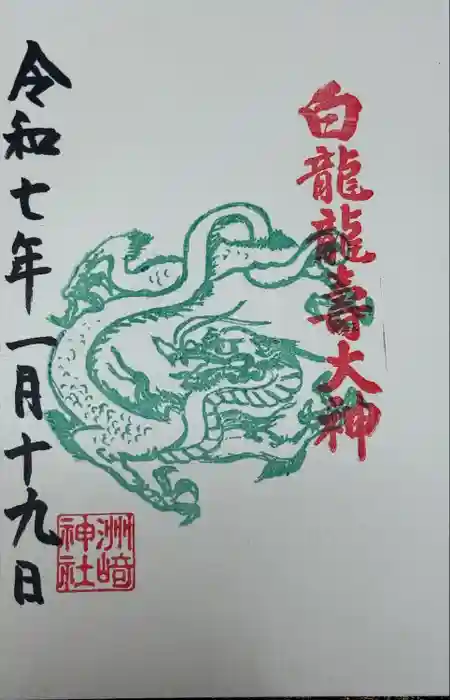 白龍龍壽大神
令和七年一月十九日
洲崎神社